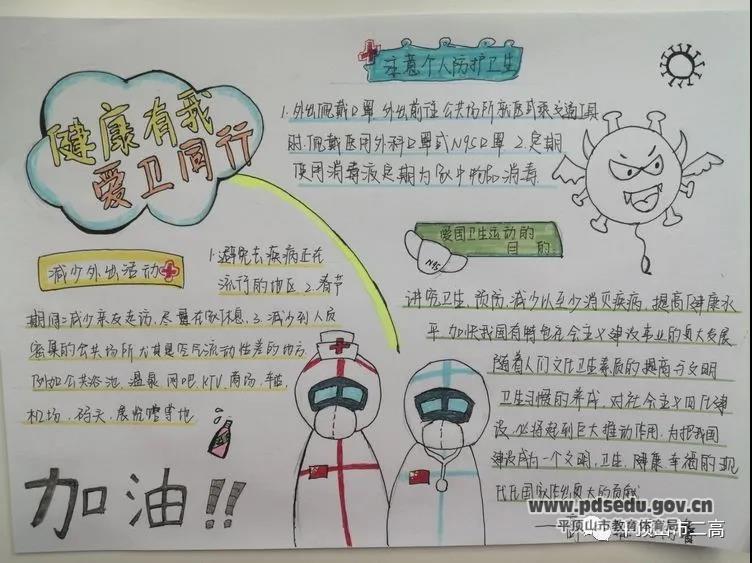 健康有我
爱卫同行
注意个人防护卫生
1.外出佩戴口罩.外出前往公共场所就医或乘交通工具
时.佩戴医用外科口罩或N95口罩.2.定期
使用消毒液定期为家中物品消毒.
减少外出活动
1.避免去疾病正在
流行的地区.2.春节
期间:减少亲友走访.尽量在家休息.3.减少到人员
密集的公共场所尤其是空气流动性差的地方.
例如公共浴池.温泉.网吧.KTV.商场.车站.
机场.码头.展览馆等地
爱国卫生运动的
目的.
N95
讲究卫生.预防.减少以至少消灭疾病.提高健康水
平.加快我国有特色社会主义建设事业的更大发展
随着人们文化卫生素质的提高与文明
卫生习惯的养成.对社会主义四化建
设.必将起到巨大推动作用.为把我国
建设成为一个文明.卫生.健康.幸福的现
代化国家作出更大的贡献
加油!!
www.pdsedu.gov.cn
平顶山市教育体育局
平顶山市二高